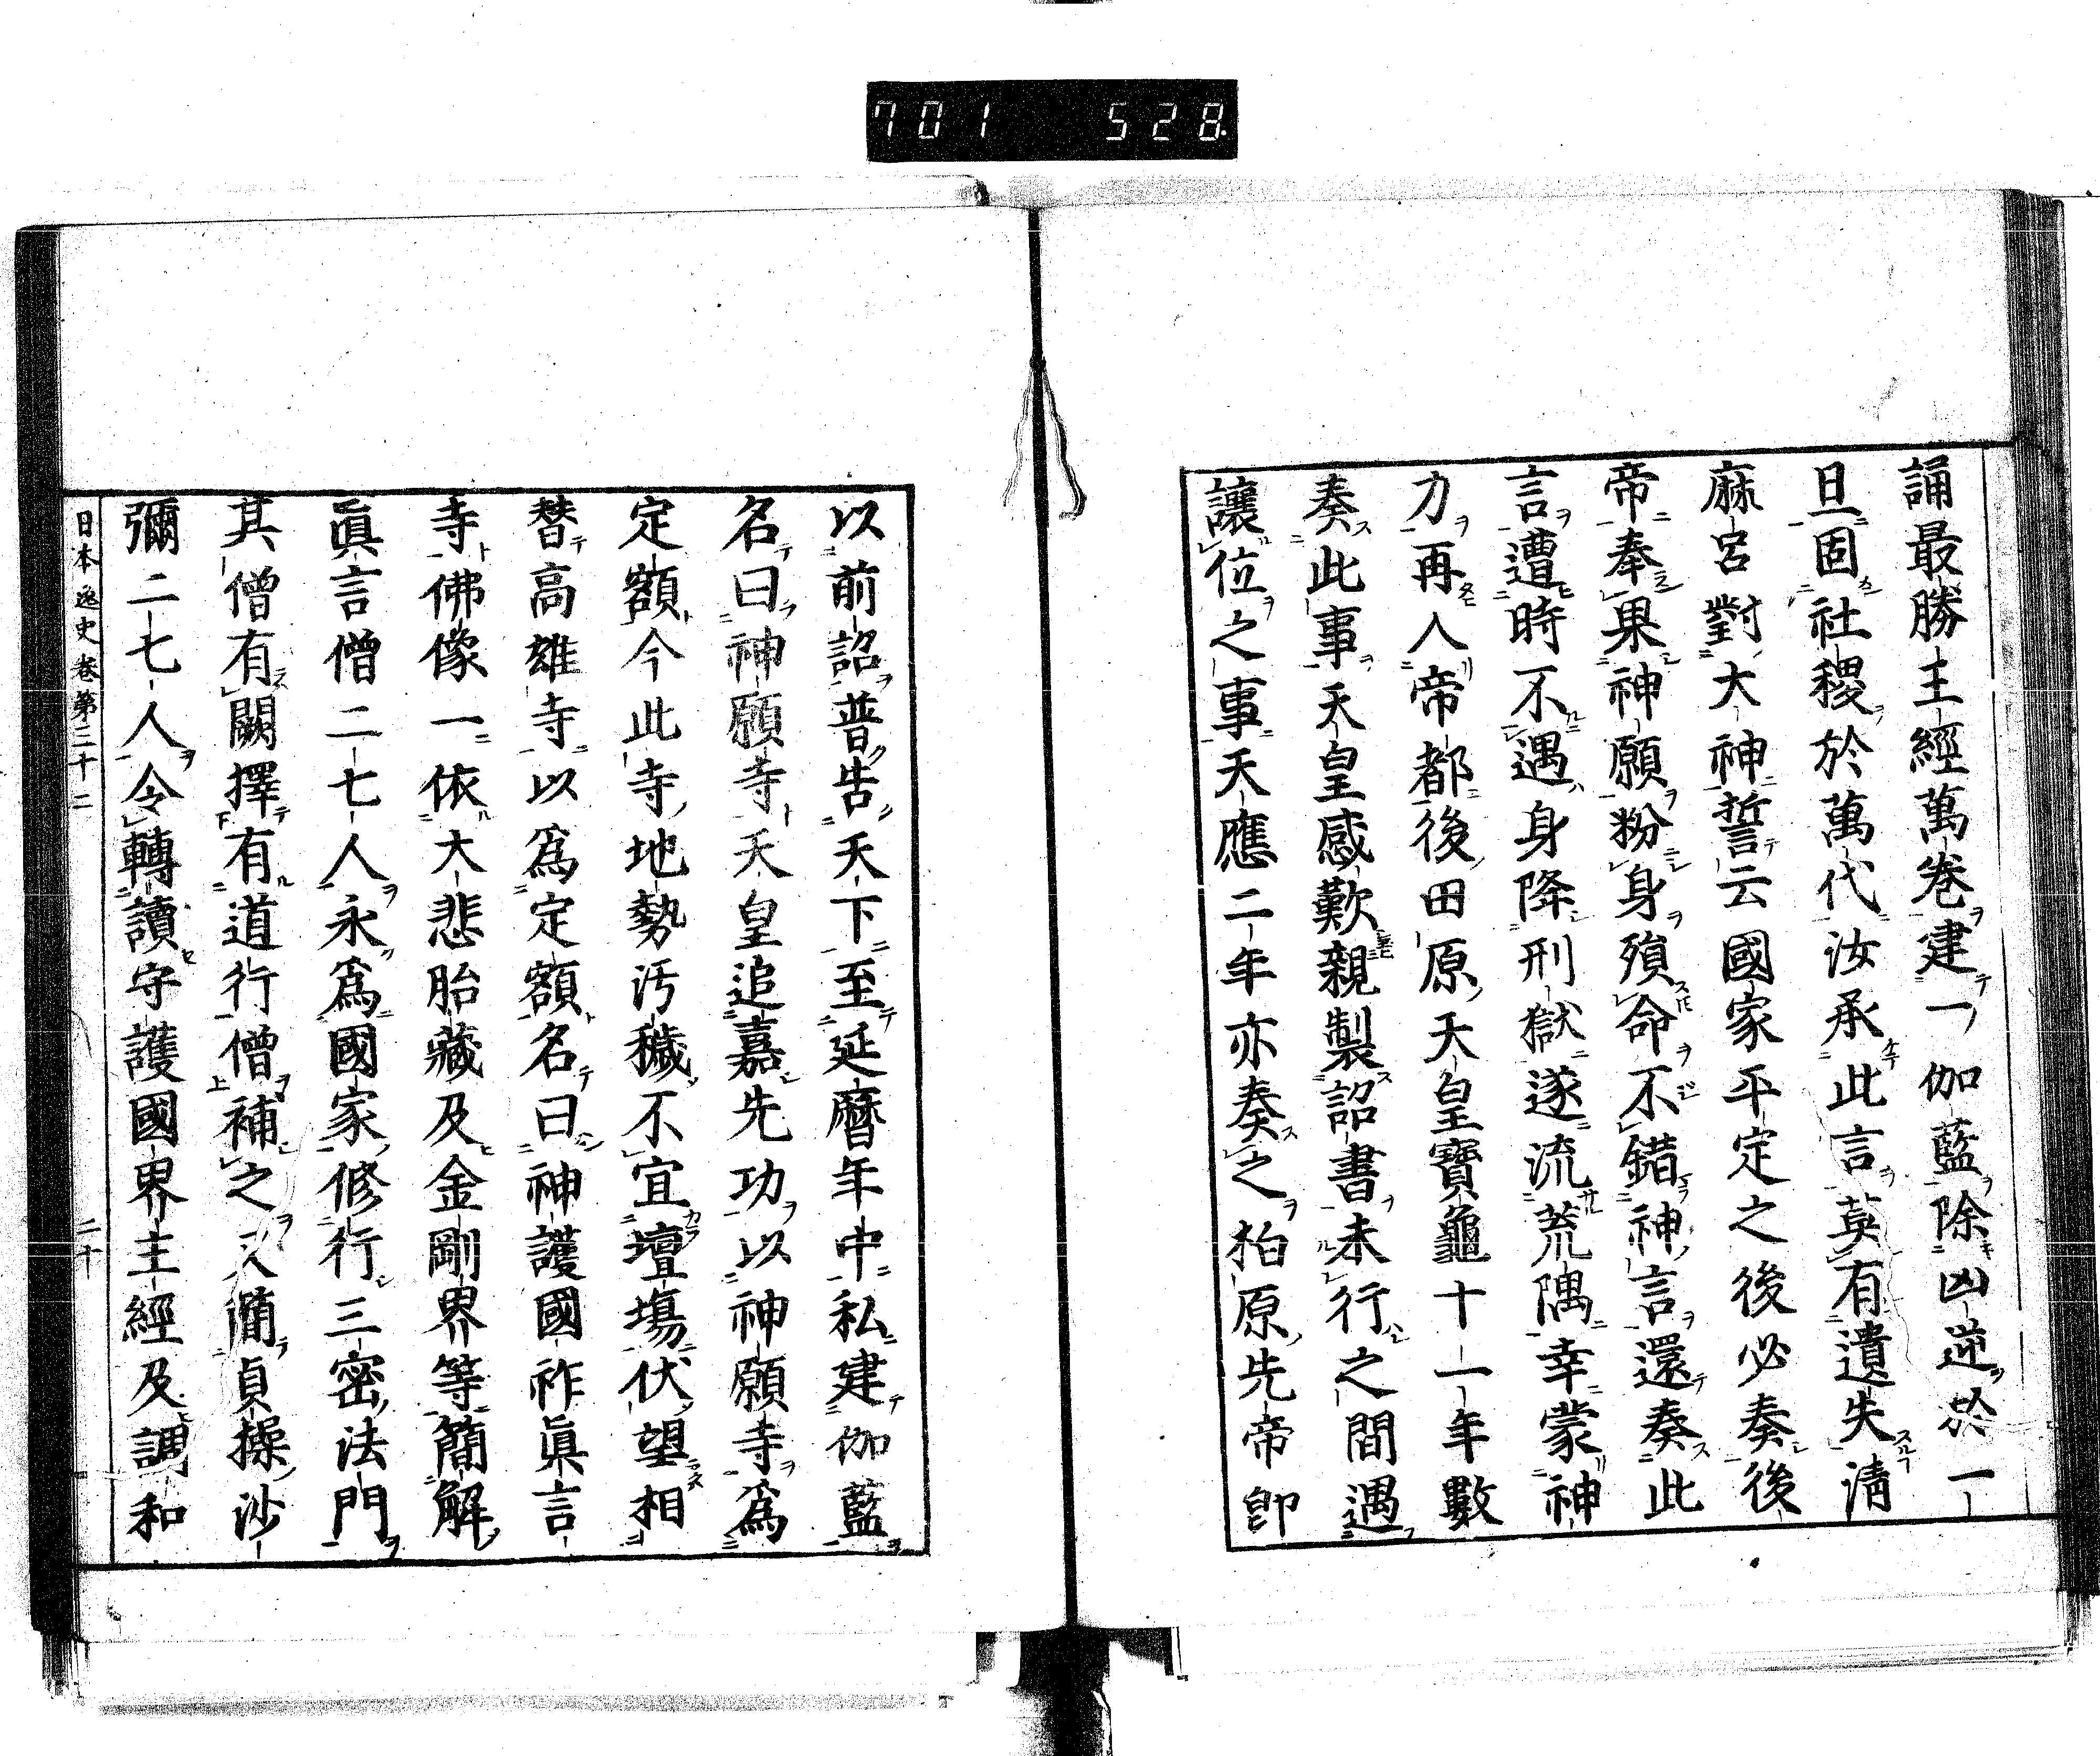 701 528
誦最勝王經萬卷建一伽藍除凶逆於一
旦固社稷於萬代汝承此言莫有遺失淸
麻呂對大神誓云國家平定之後必奏後
帝奉果神願粉身殞命不錯神言還奏此
言遭時不遇身降刑獄遂流荒隅幸蒙神
力再入帝都後田原天皇寶龜十一年數
奏此事天皇感歎親製詔書未行之間遇
讓位之事天應二年亦奏之柏原先帝卽
以前詔普告天下至延曆年中私建伽藍
名曰神願寺天皇追嘉先功以神願寺爲
定額今此寺地勢汚穢不宜壇場伏望相
替高雄寺以爲定額名曰神護國祚眞言
寺佛像一依大悲胎藏及金剛界等簡解
眞言僧二七人永爲國家修行三密法門
其僧有闕擇有道行僧補之又簡貞操沙
彌二七人令轉讀守護國界主經及調和
日本逸史卷第三十二 二十